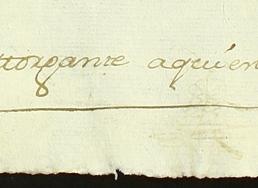 ttorgante aquien